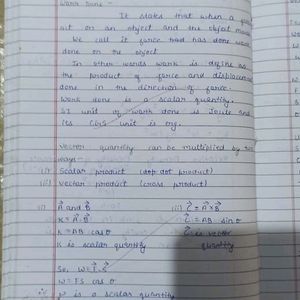 Work Done -
It states that when a
act on an object and the object
We call it force had has done work
done on the object
In other words work is define as
the product of force and displacement
done in the direction of force.
Work done is a scalar quantity.
SI unit of work done is Joule and
its CGS unit is erg.
Vector quantity can be multiplied by two
ways
(i) Scalar product (dot product)
(ii) Vector product (cross product)
(i) A⃗ and B⃗ (ii) C⃗ = A⃗ × B⃗
K = A⃗ . B⃗ C⃗ = AB sin θ
K = AB cos θ C⃗ is vector
K is scalar quantity quantity
So, W = F⃗ . S⃗
W = FS cos θ
W is a scalar quantity